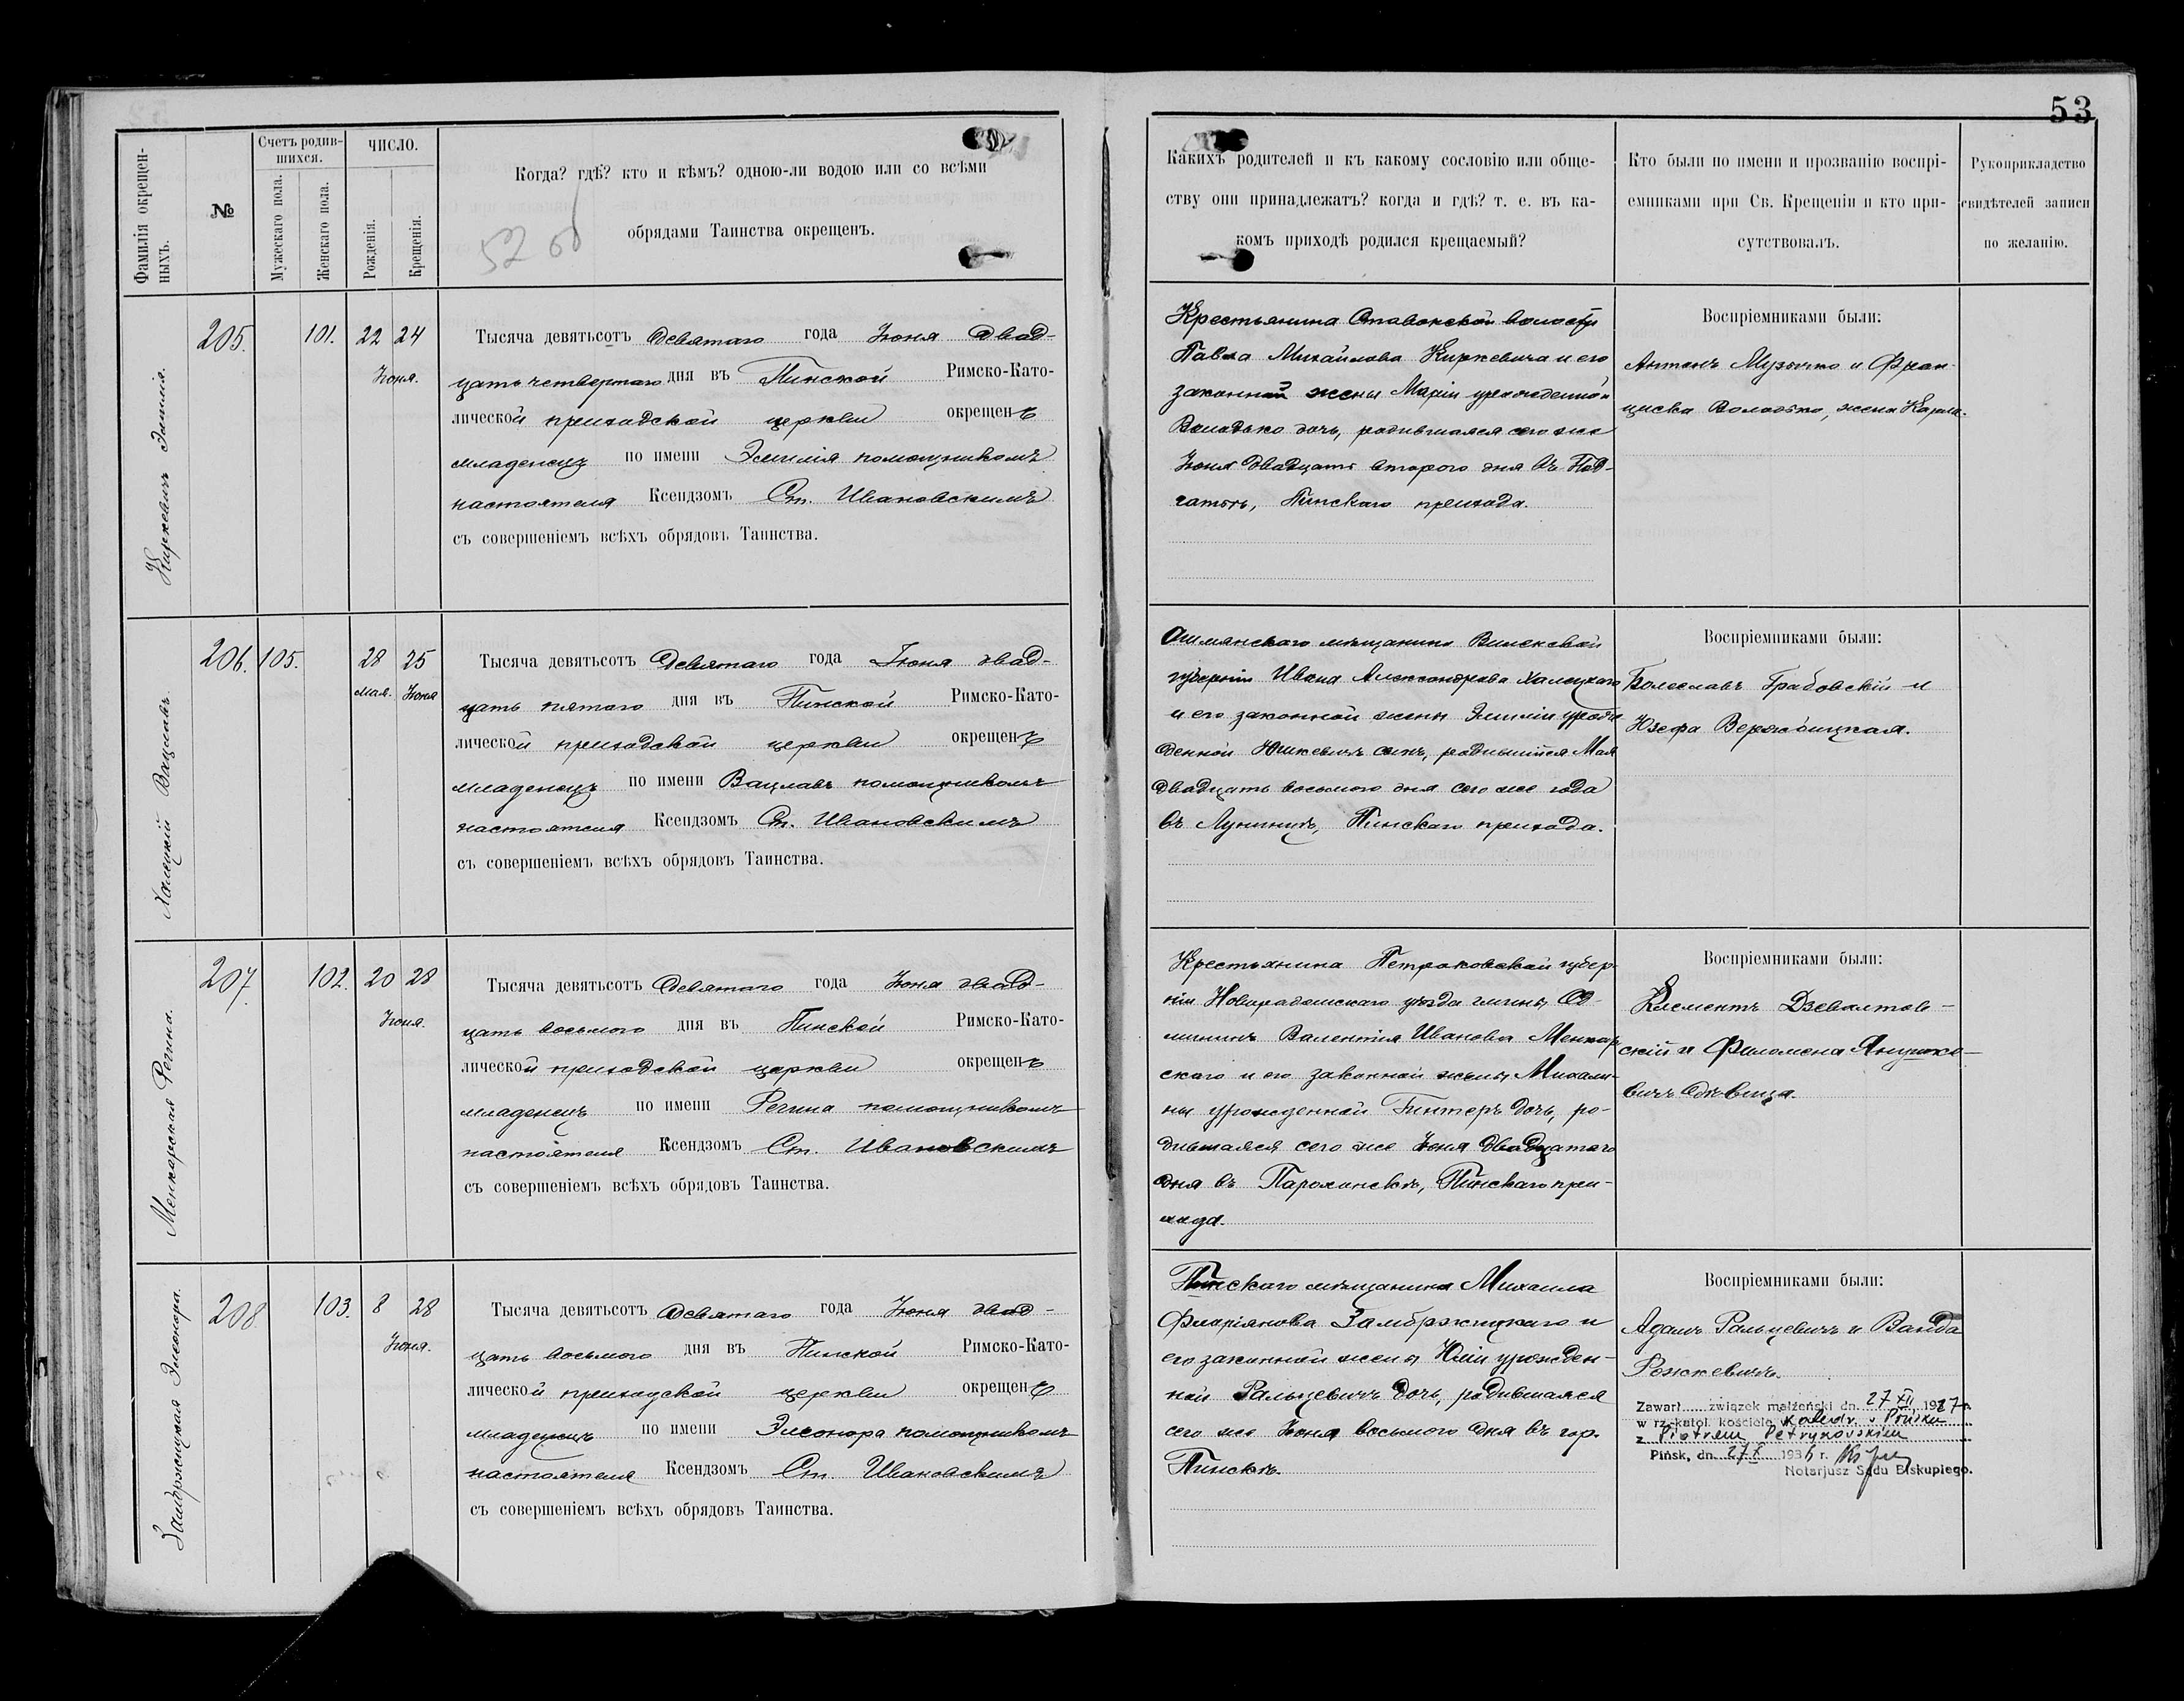 53
Фамилія окрещен-
ныхъ.
№
Счетъ родив-
шихся.
Мужескаго пола.
Женскаго пола.
ЧИСЛО.
Рожденія.
Крещенія.
Когда? гдѣ? кто и кѣмъ? одною-ли водою или со всѣми
обрядами Таинства окрещенъ.
52 об
Какихъ родителей и къ какому сословію или обще-
ству они принадлежатъ? когда и гдѣ? т. е. въ ка-
комъ приходѣ родился крещаемый?
Кто были по имени и прозванію воспрі-
емниками при Св. Крещеніи и кто при-
сутствовалъ.
Рукоприкладство
свидѣтелей записи
по желанію.
Киркевичъ Эмилія.
205.
101.
22 24
Іюня.
Тысяча девятьсотъ девятаго года Іюня двад-
цать четвертаго дня въ Пинской Римско-Като-
лической приходской церкви окрещенъ
младенецъ по имени Эмилія помощникомъ
настоятеля Ксендзомъ Ст. Ивановскимъ
съ совершеніемъ всѣхъ обрядовъ Таинства.
Крестьянина Ставокской волости
Павла Михайлова Киркевича и его
законной жены Маріи урожденной
Володько дочь, родившаяся сего же
Іюня двадцать второго дня въ Под-
гатьѣ, Пинскаго прихода.
Воспріемниками были:
Антонъ Музычко и Фран-
циска Володько, жена Карла.
Халецкій Вацлавъ.
206.
105.
28 25
мая. Іюня
Тысяча девятьсотъ девятаго года Іюня двад-
цать пятаго дня въ Пинской Римско-Като-
лической приходской церкви окрещенъ
младенецъ по имени Вацлавъ помощникомъ
настоятеля Ксендзомъ Ст. Ивановскимъ
съ совершеніемъ всѣхъ обрядовъ Таинства.
Ошмянскаго мѣщанина Виленской
губерніи Ивана Александрова Халецкаго
и его законной жены Эмиліи урож-
денной Юшкевичъ сынъ, родившійся Мая
двадцать восьмого дня сего же года
въ Лунинцѣ, Пинскаго прихода.
Воспріемниками были:
Болеславъ Грабовскій и
Юзефа Вержбицкая.
Менкарская Регина.
207.
102.
20 28
Іюня.
Тысяча девятьсотъ девятаго года Іюня двад-
цать восьмого дня въ Пинской Римско-Като-
лической приходской церкви окрещенъ
младенецъ по имени Регина помощникомъ
настоятеля Ксендзомъ Ст. Ивановскимъ
съ совершеніемъ всѣхъ обрядовъ Таинства.
Крестьянина Петроковской губер-
ніи Новорадомскаго уѣзда гмины
Валентія Иванова Менкар-
скаго и его законной жены Михали-
ны урожденной Гинтеръ дочь, ро-
дившаяся сего же Іюня двадцатаго
дня въ Парохонскѣ, Пинскаго при-
хода.
Воспріемниками были:
Клементъ Дзевалтов-
скій и Филомена Янушке-
вичъ дѣвица.
Замбржицкая Элеонора.
208
103.
8 28
Іюня.
Тысяча девятьсотъ девятаго года Іюня двад-
цать восьмого дня въ Пинской Римско-Като-
лической приходской церкви окрещенъ
младенецъ по имени Элеонора помощникомъ
настоятеля Ксендзомъ Ст. Ивановскимъ
съ совершеніемъ всѣхъ обрядовъ Таинства.
Пинскаго мѣщанина Михаила
Флоріянова Замбржицкаго и
его законной жены Юліи урожден-
ной Ральцевичъ дочь, родившаяся
сего же Іюня восьмого дня въ гор.
Пинскѣ.
Воспріемниками были:
Адамъ Ральцевичъ и Ванда
Рожкевичъ.
Zawarł związek małżeński dn. 27 XII 1927 r.
w rz.-katol. kościele katedr. w Pińsku
z Piotrem Petrykowskim
Pińsk, dn. 27 X 1936 r.
Notarjusz Sądu Biskupiego.